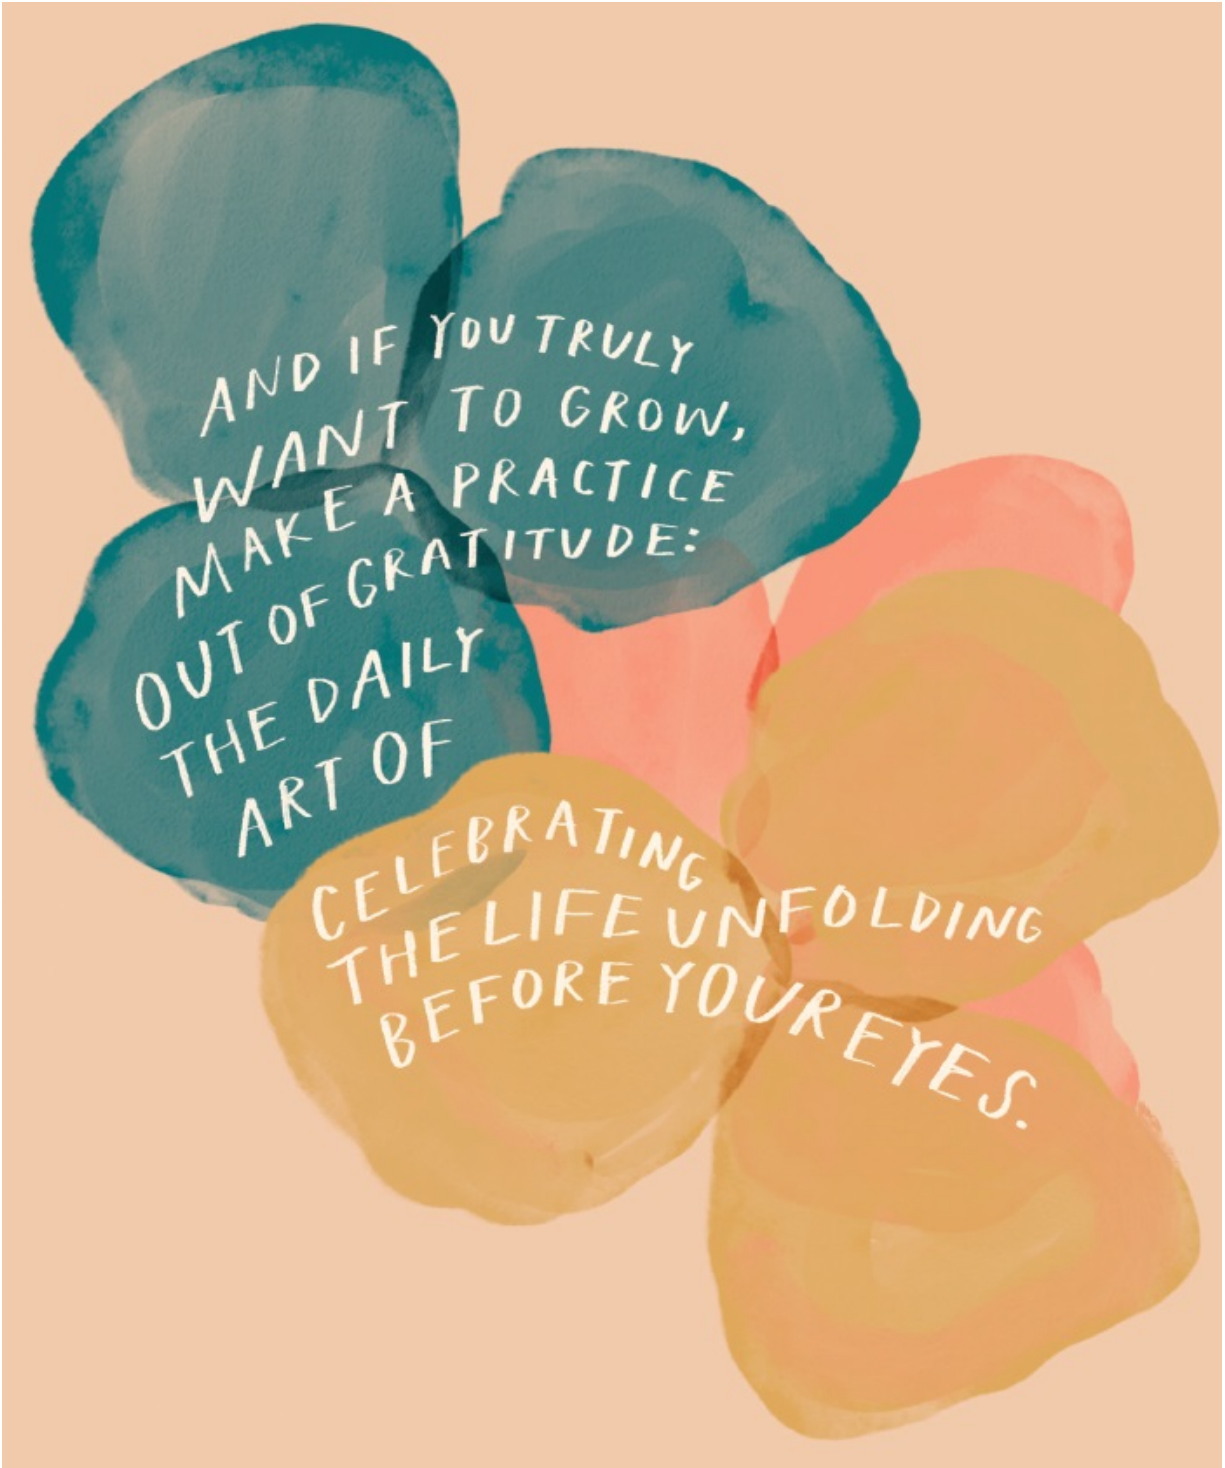 AND IF YOU TRULY
WANT TO GROW,
MAKE A PRACTICE
OUT OF GRATITUDE:
THE DAILY
ART OF
CELEBRATING
THE LIFE UNFOLDING
BEFORE YOUR EYES.